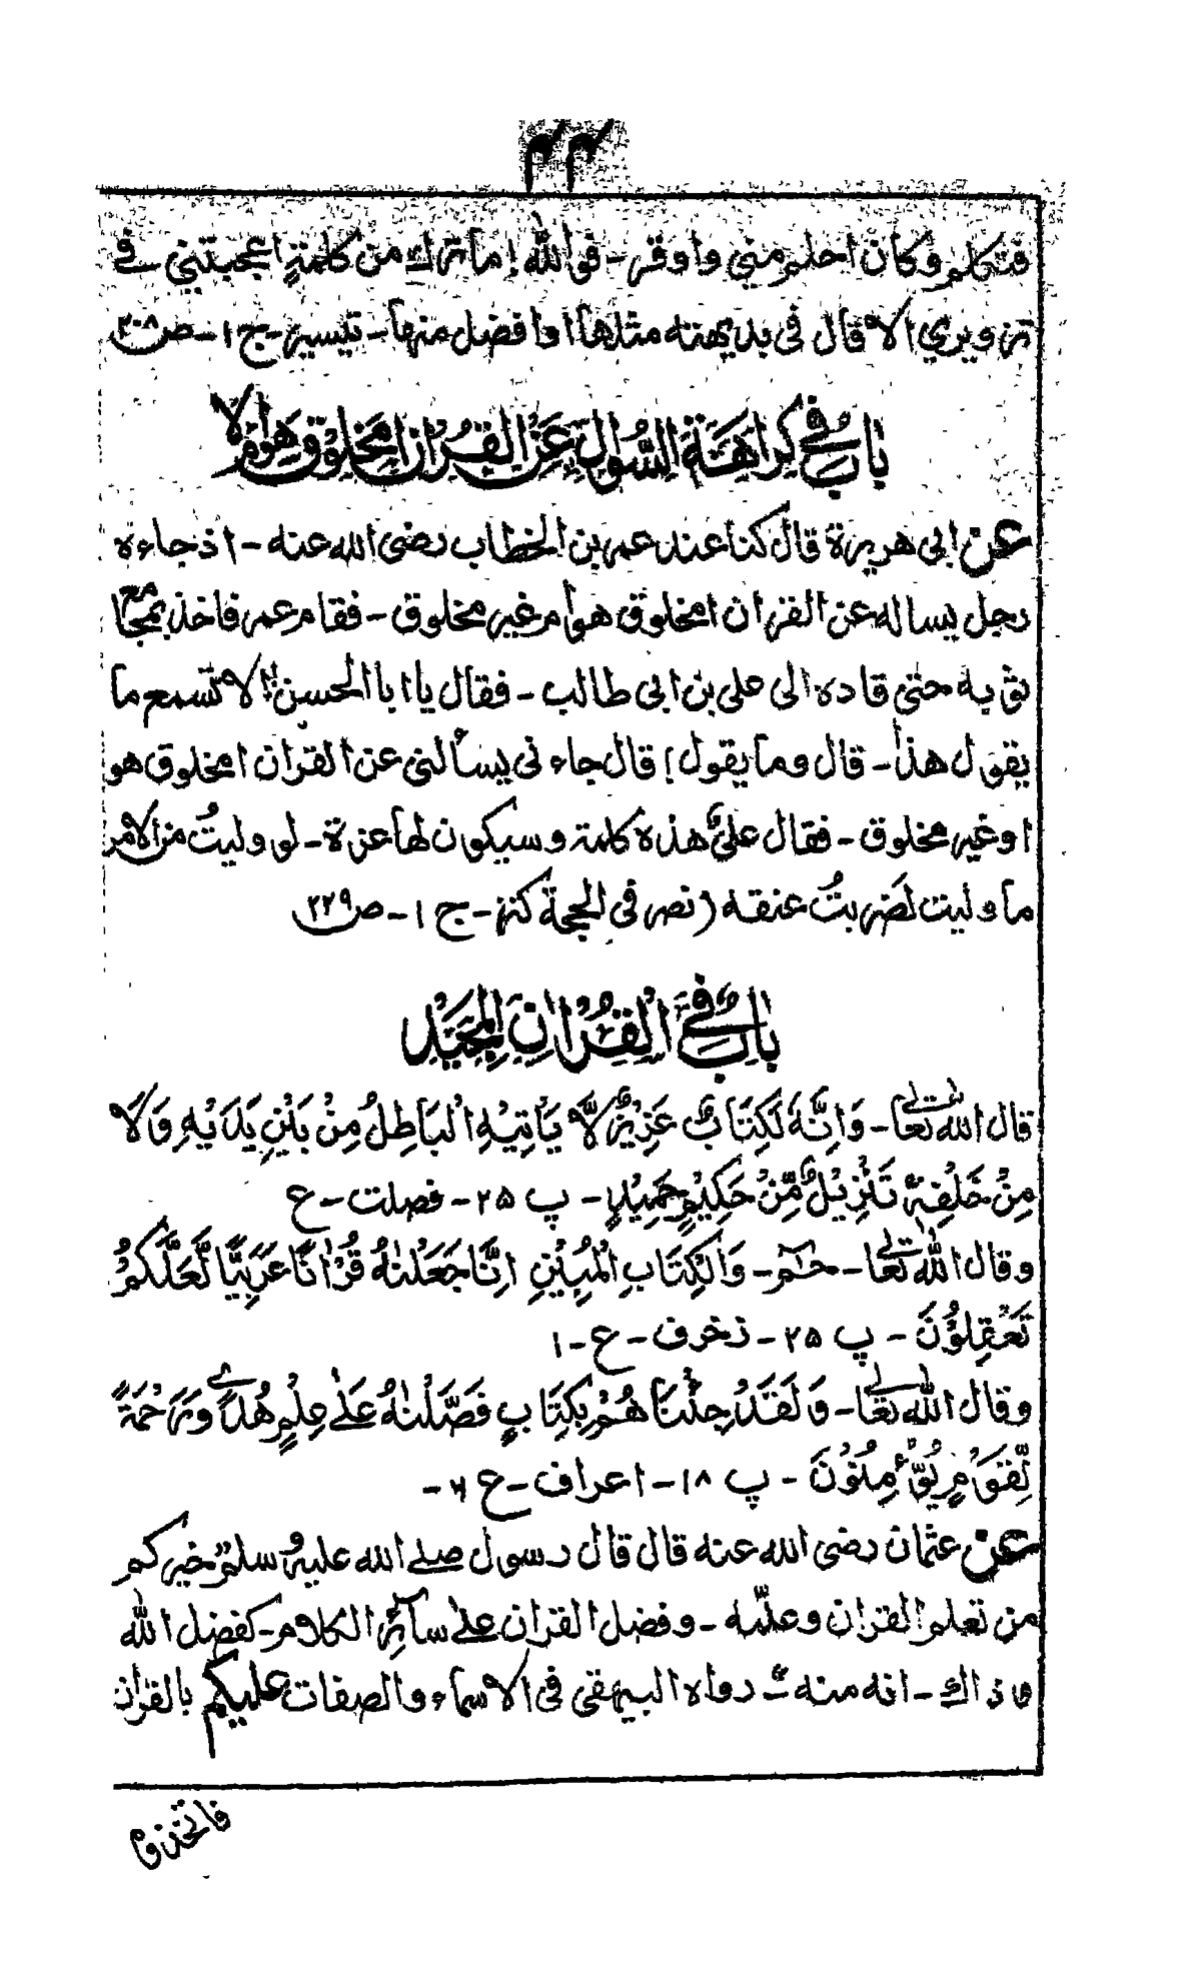 ۴۴
فتكلم وكان احلم مني واوقر - فوالله! ما ترك من كلمةٍ اعجبتني في
تزويري الا قال في بديهته مثلها او افضل منها - تيسير - ج ۱ - ص ۲۰۸
بَابٌ فِي كَرَاهَةِ السُّوَالِ عَنِ الْقُرْاٰنِ اَمَخْلُوْقٌ هُوَ اَمْ لَا
عن ابي هريرة قال كنا عند عمر بن الخطاب رضى الله عنه - اذ جاءه
رجل يساله عن القران امخلوق هو أم غير مخلوق - فقام عمر فاخذ بمجامع
ثوبه حتى قاده الى على بن ابى طالب - فقال يا ابا الحسن! الا تسمع ما
يقول هذا - قال وما يقول! قال جاءنى يسألنى عن القران امخلوق هو
او غير مخلوق - فقال علىؓ هذه كلمة وسيكون لها عزة - لو وليتُ من الامر
ما وليت لضربتُ عنقه (نصر فى الحجة كنز - ج ۱ - ص ۲۲۹
بَابٌ فِي الْقُرْاٰنِ الْمَجِيْدِ
قال الله تعالى - وَاِنَّهٗ لَكِتَابٌ عَزِيْزٌ لَّا يَاْتِيْهِ الْبَاطِلُ مِنْ بَيْنِ يَدَيْهِ وَلَا
مِنْ خَلْفِهٖ تَنْزِيْلٌ مِّنْ حَكِيْمٍ حَمِيْدٍ - پ ۲۵ - فصلت - ع
وقال الله تعالى - حٰمٓ - وَالْكِتَابِ الْمُبِيْنِ اِنَّا جَعَلْنٰهُ قُرْاٰنًا عَرَبِيًّا لَّعَلَّكُمْ
تَعْقِلُوْنَ - پ ۲۵ - زخرف - ع - ۱
وقال الله تعالى - وَلَقَدْ جِئْنَاهُمْ بِكِتَابٍ فَصَّلْنٰهُ عَلٰى عِلْمٍ هُدًى وَّرَحْمَةً
لِّقَوْمٍ يُّؤْمِنُوْنَ - پ ۱۸ - اعراف - ع ۶ -
عن عثمان رضى الله عنه قال قال رسول الله صلے الله عليه وسلم خيركم
من تعلم القران وعلّمه - وفضل القران علے سآئر الكلام - كفضل الله
وذاك - انه منه - رواه البيهقى فى الاسماء والصفات عليكم بالقران
فاتخذوه